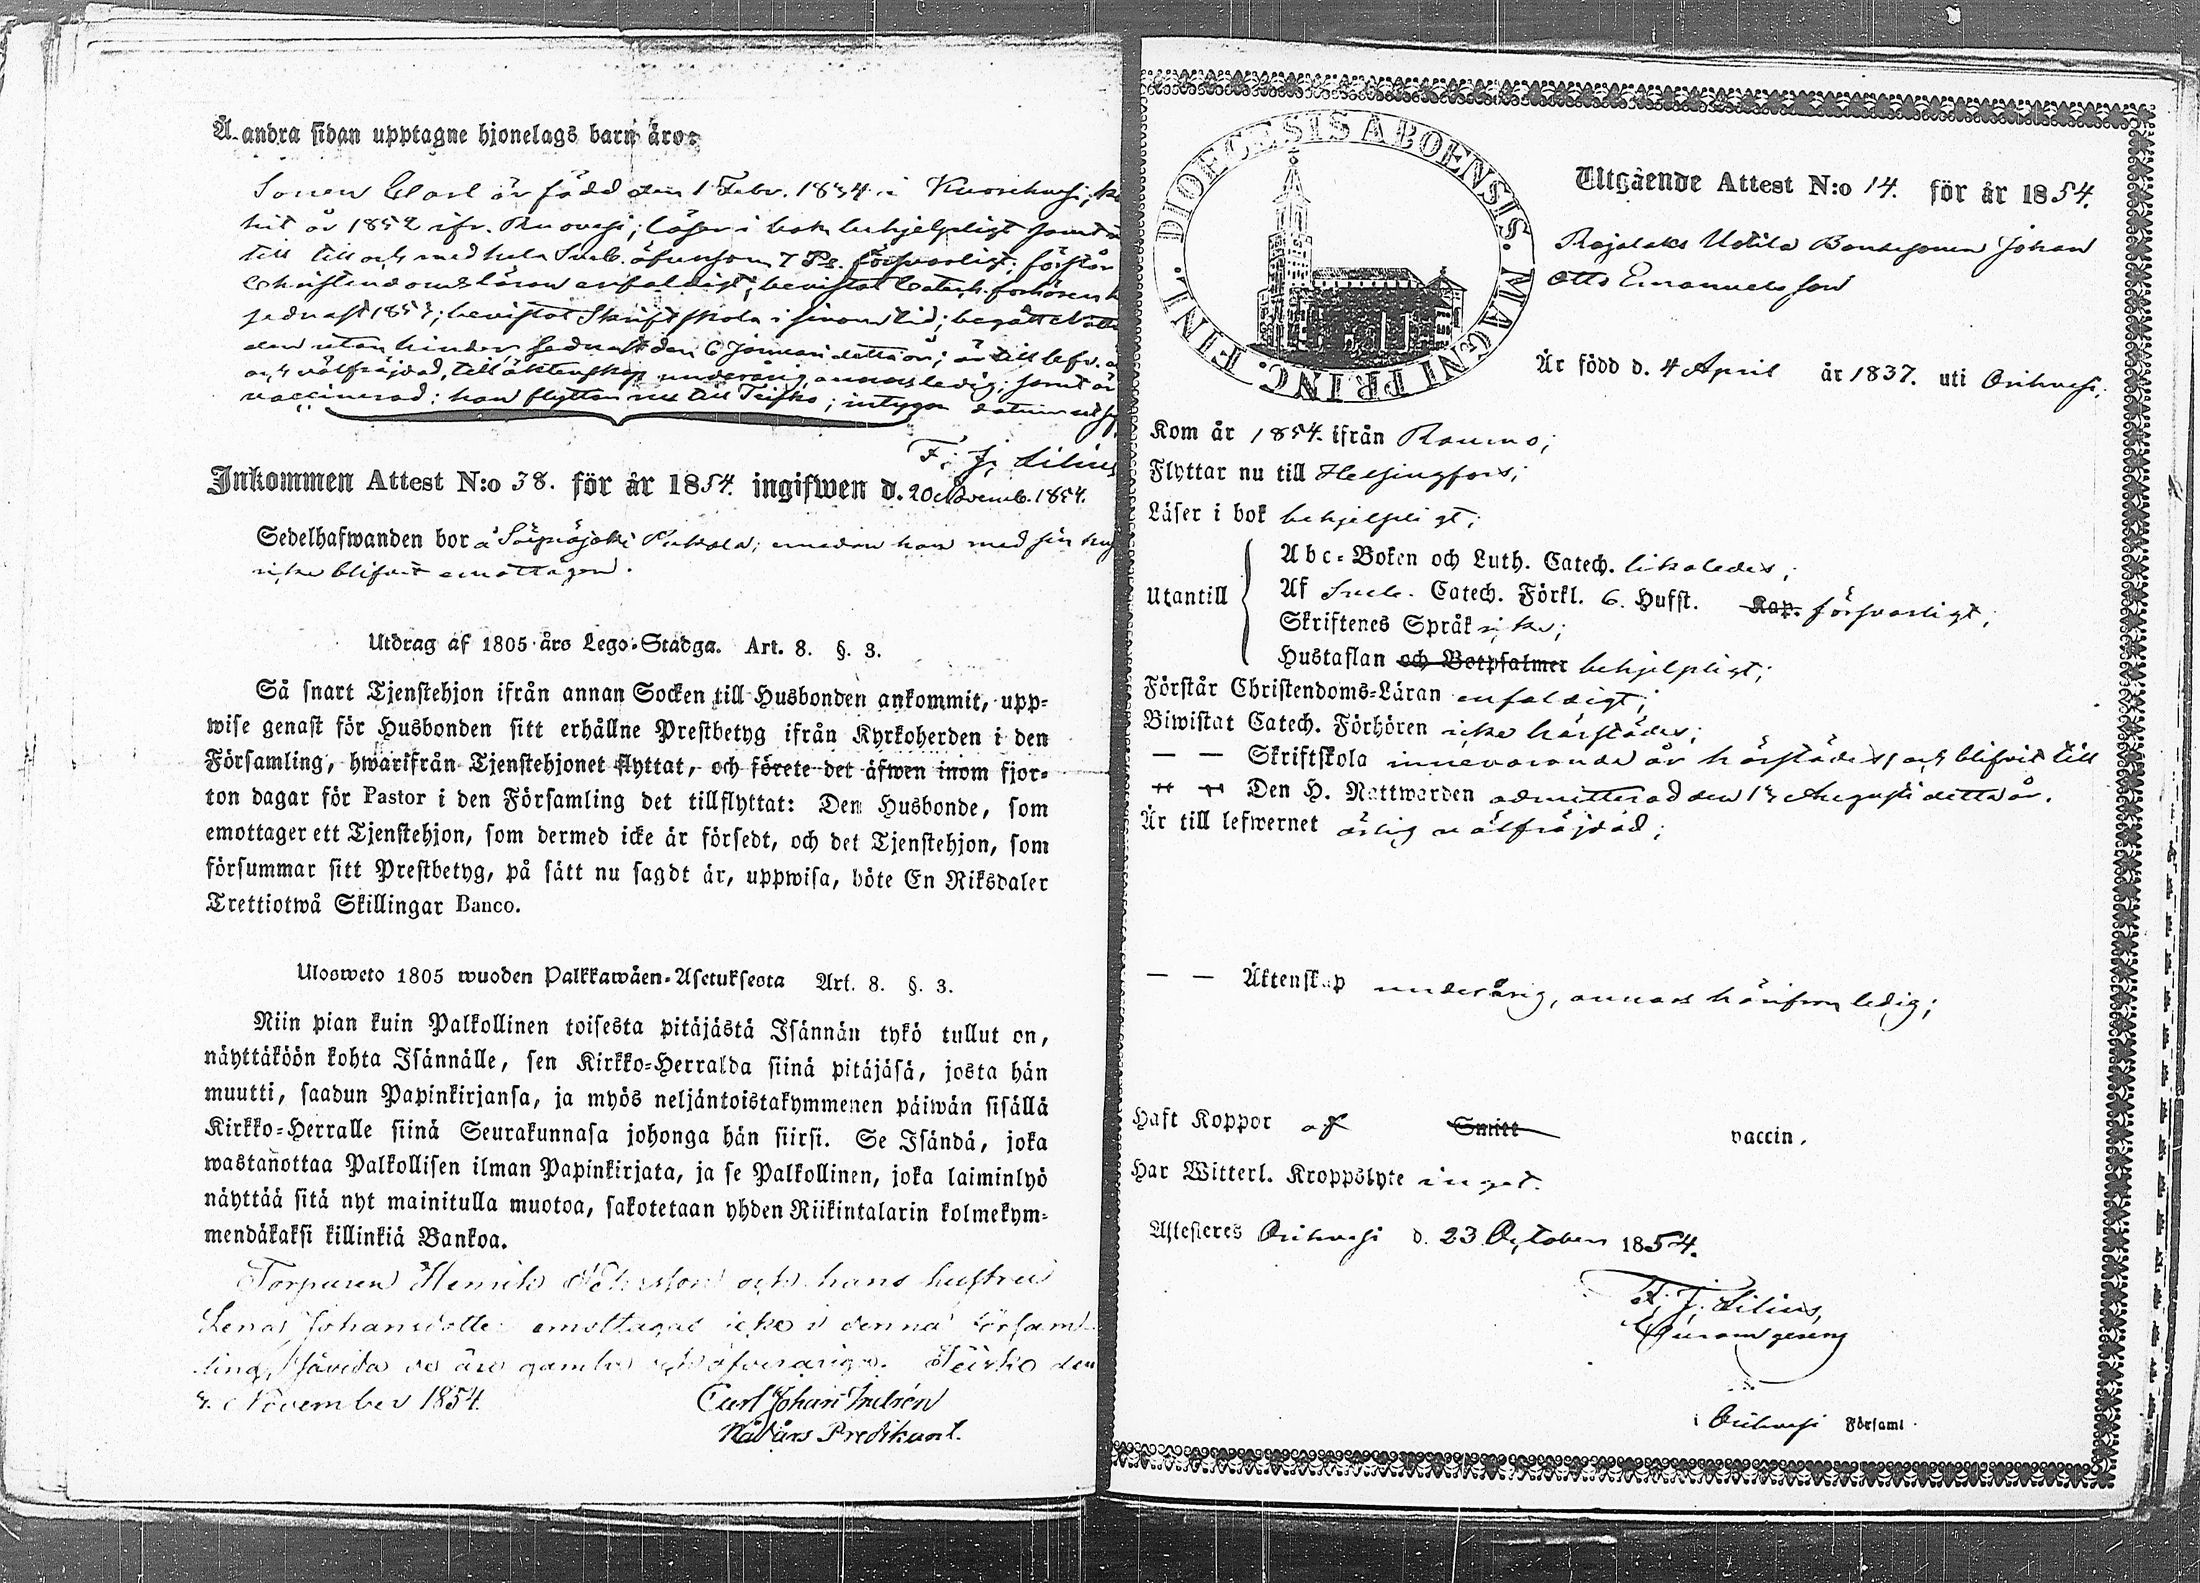 Å andra sidan upptagne hjonelags barn äro:
Sonen Carl är född den 1 Febr. 1834 i
hit år 1852 ifr. Ruovesi; läser i bok behjelpligt samt
till och med hela Sveb. äfvensom 7 Ps. försvarligt; förstår
Christendomsläran enfaldigt; bevistat Catech. förhören
sednast 185; bevistat Skriftskola i sinom tid; begått
den utan hinder sednast den 6 Januari detta år; är till lefv.
och välfräjdad, till äktenskap underårig, annars ledig; samt är
vaccinerad; han flyttar nu till Teisko; intygar datum
F. J. Lilius
Inkommen Attest N:o 38. för år 1854. ingifwen d. 20 Novemb. 1854.
Sedelhafwanden bor å Säynäjoki; emedan han med sin
icke blifvit emottagen.
Utdrag af 1805 års Lego-Stadga. Art. 8. §. 3.
Så snart Tjenstehjon ifrån annan Socken till Husbonden ankommit, upp-
wise genast för Husbonden sitt erhållne Prestbetyg ifrån Kyrkoherden i den
Församling, hwarifrån Tjenstehjonet flyttat, och förete det äfwen inom fjor-
ton dagar för Pastor i den Församling det tillflyttat: Den Husbonde, som
emottager ett Tjenstehjon, som dermed icke är försedt, och det Tjenstehjon, som
försummar sitt Prestbetyg, på sätt nu sagdt är, uppwisa, böte En Riksdaler
Trettiotwå Skillingar Banco.
Ulosweto 1805 wuoden Palkkawäen-Asetuksesta Art. 8. §. 3.
Niin pian kuin Palkollinen toisesta pitäjästä Isännän tykö tullut on,
näyttäköön kohta Isännälle, sen Kirkko-Herralda siinä pitäjäsä, josta hän
muutti, saadun Papinkirjansa, ja myös neljäntoistakymmenen päiwän sisällä
Kirkko-Herralle siinä Seurakunnasa johonga hän siirsi. Se Isändä, joka
wastanottaa Palkollisen ilman Papinkirjata, ja se Palkollinen, joka laiminlyö
näyttää sitä nyt mainitulla muotoa, sakotetaan yhden Riikintalarin kolmekym-
mendäkaksi killinkiä Bankoa.
Torparen Henrik och hans hustru
Lena Johansdotter emottagas icke i denna försam-
ling, såvida de äro gamla och öfveråriga. Teisko den
November 1854.
Carl Johan
Nådårs Predikant.
DIOECESIS ABOENSIS. MAGNI PRINC. FINL.
Utgående Attest N:o 14. för år 1854.
Rajalaks Uotila Bondesonen Johan
Otto Emanuelsson
Är född d. 4 April år 1837. uti Orihvesi;
Kom år 1854. ifrån Raumo;
Flyttar nu till Helsingfors;
Läser i bok behjelpligt;
Utantill
Abc-Boken och Luth. Catech. likaledes;
Af Sveb. Catech. Förkl. 6. Hufst. Kap. försvarligt;
Skriftenes Språk icke;
Hustaflan och Botpsalmer behjelpligt;
Förstår Christendoms-Läran enfaldigt;
Biwistat Catech. Förhören icke härstädes;
— — Skriftskola innevarande år härstädes, och blifvit till
Den H. Nattwarden admitterad den 13 Augusti detta år.
Är till lefwernet ärlig o välfräjdad;
— — Äktenskap underårig, annars härifrån ledig;
Haft Koppor af Smitt vaccin.
Har Witterl. Kroppslyte inget.
Attesteres Orihvesi d. 23 October 1854.
F. J. Lilius,
i Orihvesi Församl.